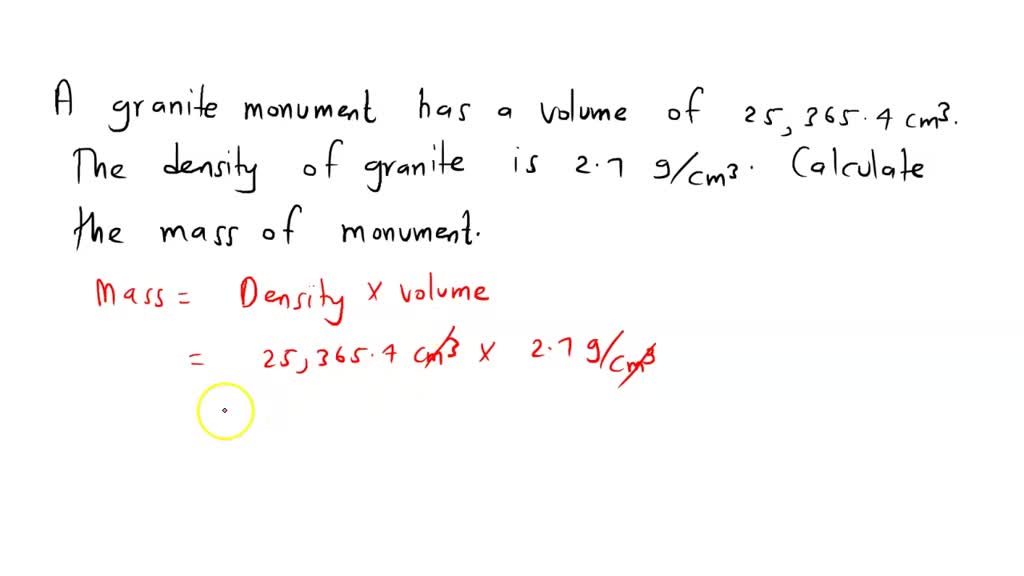 A granite monument has a volume of 25,365.4 cm³.
The density of granite is 2.7 g/cm³. Calculate
the mass of monument.
Mass = Density × volume
= 25,365.4 cm³ × 2.7 g/cm³